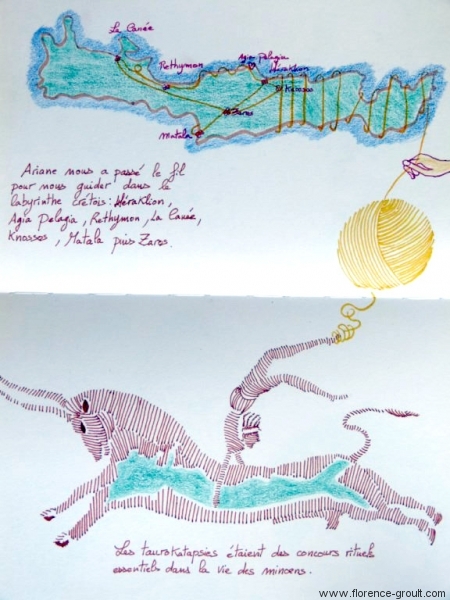 La Canée
Rethymon
Agia Pelagia
Héraklion
Knossos
Zaros
Matala
Ariane nous a passé le fil
pour nous guider dans le
labyrinthe crétois: Héraklion,
Agia Pelagia, Rethymon, La Canée,
Knossos, Matala puis Zaros.
Les taurokatapsies étaient des concours rituels
essentiels dans la vie des minoens.
www.florence-groult.com